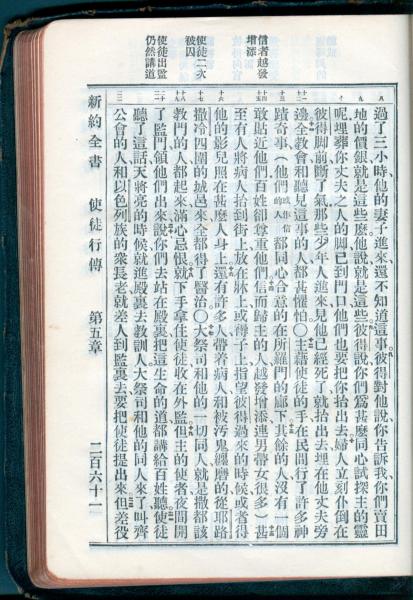 信者越發
增添
使徒二次
被囚
使徒出監
仍然講道
過了三小時他的妻子進來還不知道這事彼得對他說你告訴我你們賣田
地的價銀就是這些麽他說就是這些彼得說你們爲甚麽同心試探主的靈
呢埋葬你丈夫之人的脚已到門口他們也要把你抬出去婦人立刻仆倒在
彼得脚前斷了氣那些少年人進來見他已經死了就抬出去埋在他丈夫旁
邊全教會和聽見這事的人都甚懼怕〇主藉使徒的手在民間行了許多神
蹟奇事（他們或作信的人都同心合意的在所羅門的廊下其餘的人沒有一個
敢貼近他們百姓卻尊重他們信而歸主的人越發增添連男帶女很多）甚
至有人將病人抬到街上放在牀上或褥子上指望彼得過來的時候或者得
他的影兒照在甚麽人身上還有許多人帶着病人和被汚鬼纏磨的從耶路
撒冷四圍的城邑來全都得了醫治〇大祭司和他的一切同人就是撒都該
教門的人都起來滿心忌恨就下手拿住使徒收在外監但主的使者夜間開
了監門領他們出來說你們去站在殿裏把這生命的道都講給百姓聽使徒
聽了這話天將亮的時候就進殿裏去敎訓人大祭司和他的同人來了叫齊
公會的人和以色列族的衆長老就差人到監裏去要把使徒提出來但差役
新約全書 使徒行傳 第五章 二百六十一